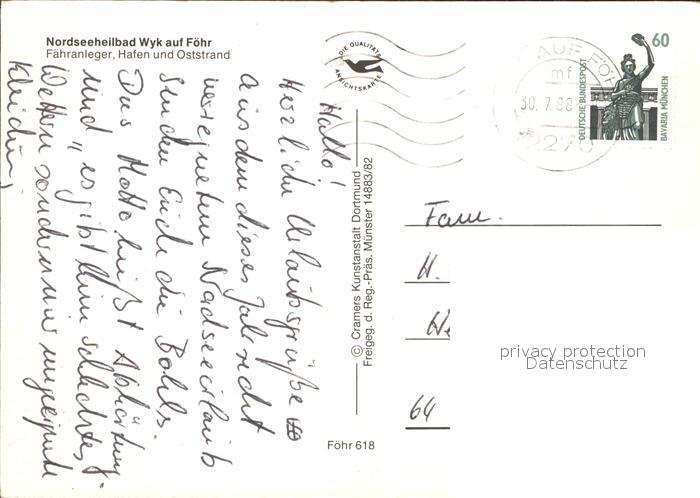 Nordseeheilbad Wyk auf Föhr
Fähranleger, Hafen und Oststrand
DIE QUALITÄTS
ANSICHTSKARTE
AUF FÖHR
mf
30.7.88
2270
60
DEUTSCHE BUNDESPOST
BAVARIA MÜNCHEN
Hallo!
Herzliche Urlaubsgrüße
aus dem dieses Jahr recht
verregneten Nordseeurlaub
senden Euch die
Das Motto heißt Abhärtung
und „es gibt kein schlechtes
Wetter sondern nur ungeeignete
Kleidung
© Cramers Kunstanstalt Dortmund
Freigeg. d. Reg.-Präs. Münster 14883/82
Föhr 618
Fam.
H.
64
privacy protection
Datenschutz